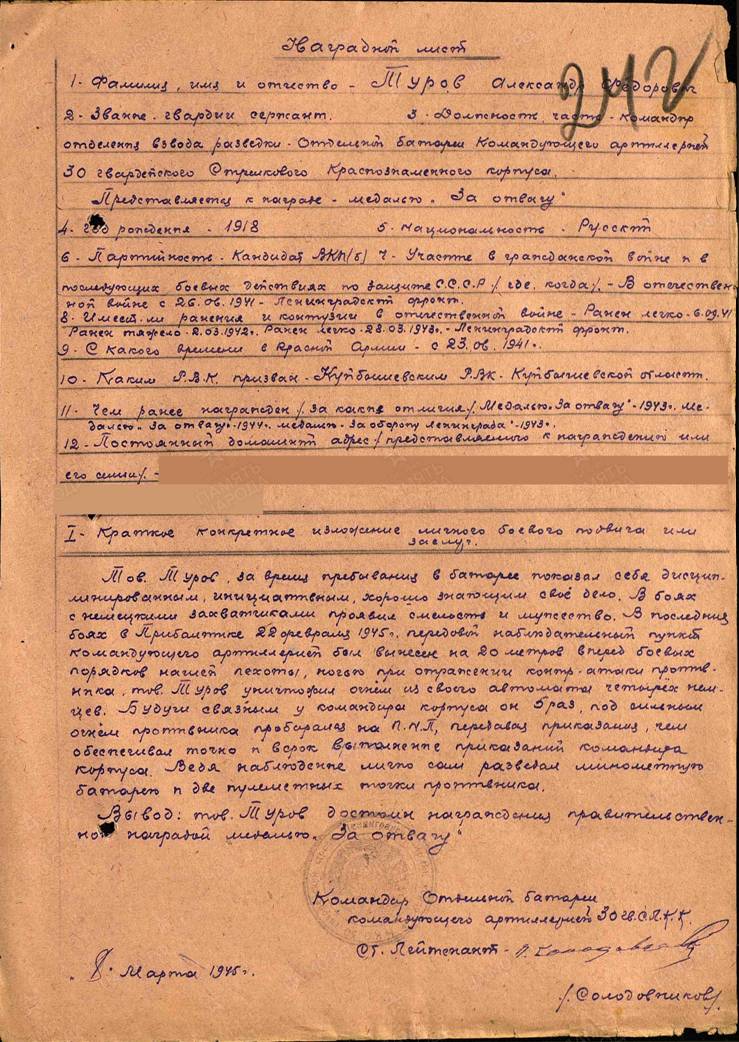 Наградной лист
242
1- Фамилия, имя и отчество - Туров Александр Федорович
2- Звание - гвардии сержант. 3- Должность, часть - командир
отделения взвода разведки - Отдельной батареи Командующего артиллерией
30 гвардейского Стрелкового Краснознаменного корпуса.
Представляется к награде - медалью "За отвагу"
4- год рождения - 1918 5- Национальность - Русский
6- Партийность - Кандидат ВКП(б) 7- Участие в гражданской войне и в
последующих боевых действиях по защите С.С.С.Р /где, когда/. - В отечествен-
ной войне с 26.06.1941 - Ленинградский фронт.
8- Имеет-ли ранения и контузии в отечественной войне - Ранен легко - 6.09.41
Ранен тяжело - 2.03.1942г. Ранен легко - 23.03.1943г. - Ленинградский фронт.
9- С какого времени в Красной Армии - с 23.06.1941г.
10- Каким Р.В.К. призван - Куйбышевским РВК - Куйбышевской области.
11- Чем ранее награжден /за какие отличия/. Медалью "За отвагу" - 1943г. Ме-
далью "За отвагу" - 1944г. медалью - За оборону Ленинграда" - 1943г.
12- Постоянный домашний адрес /представляемого к награждению или
его семьи/. -
I- Краткое конкретное изложение личного боевого подвига или
заслуг.
Тов. Туров, за время пребывания в батарее показал себя дисцип-
линированным, инициативным, хорошо знающим своё дело. В боях
с немецкими захватчиками проявил смелость и мужество. В последних
боях в Прибалтике 22 февраля 1945г. передовой наблюдательный пункт
командующего артиллерией был вынесен на 20 метров вперед боевых
порядков нашей пехоты, ночью при отражении контр-атаки против-
ника, тов. Туров уничтожил огнём из своего автомата четырёх нем-
цев. Будучи связным у командира корпуса он 5 раз, под сильным
огнём противника пробирался на П.Н.П, передавая приказания, чем
обеспечивал точно и в срок выполнение приказаний командира
корпуса. Ведя наблюдение лично сам разведал минометную
батарею и две пулеметных точки противника.
Вывод: тов. Туров достоин награждения правительствен-
ной наградой медалью "За отвагу"
Командир Отдельной батареи
командующего артиллерией 30 гв.С.Л.К.К.
Ст. Лейтенант -
"8" Марта 1945г.
/Солодовников/.